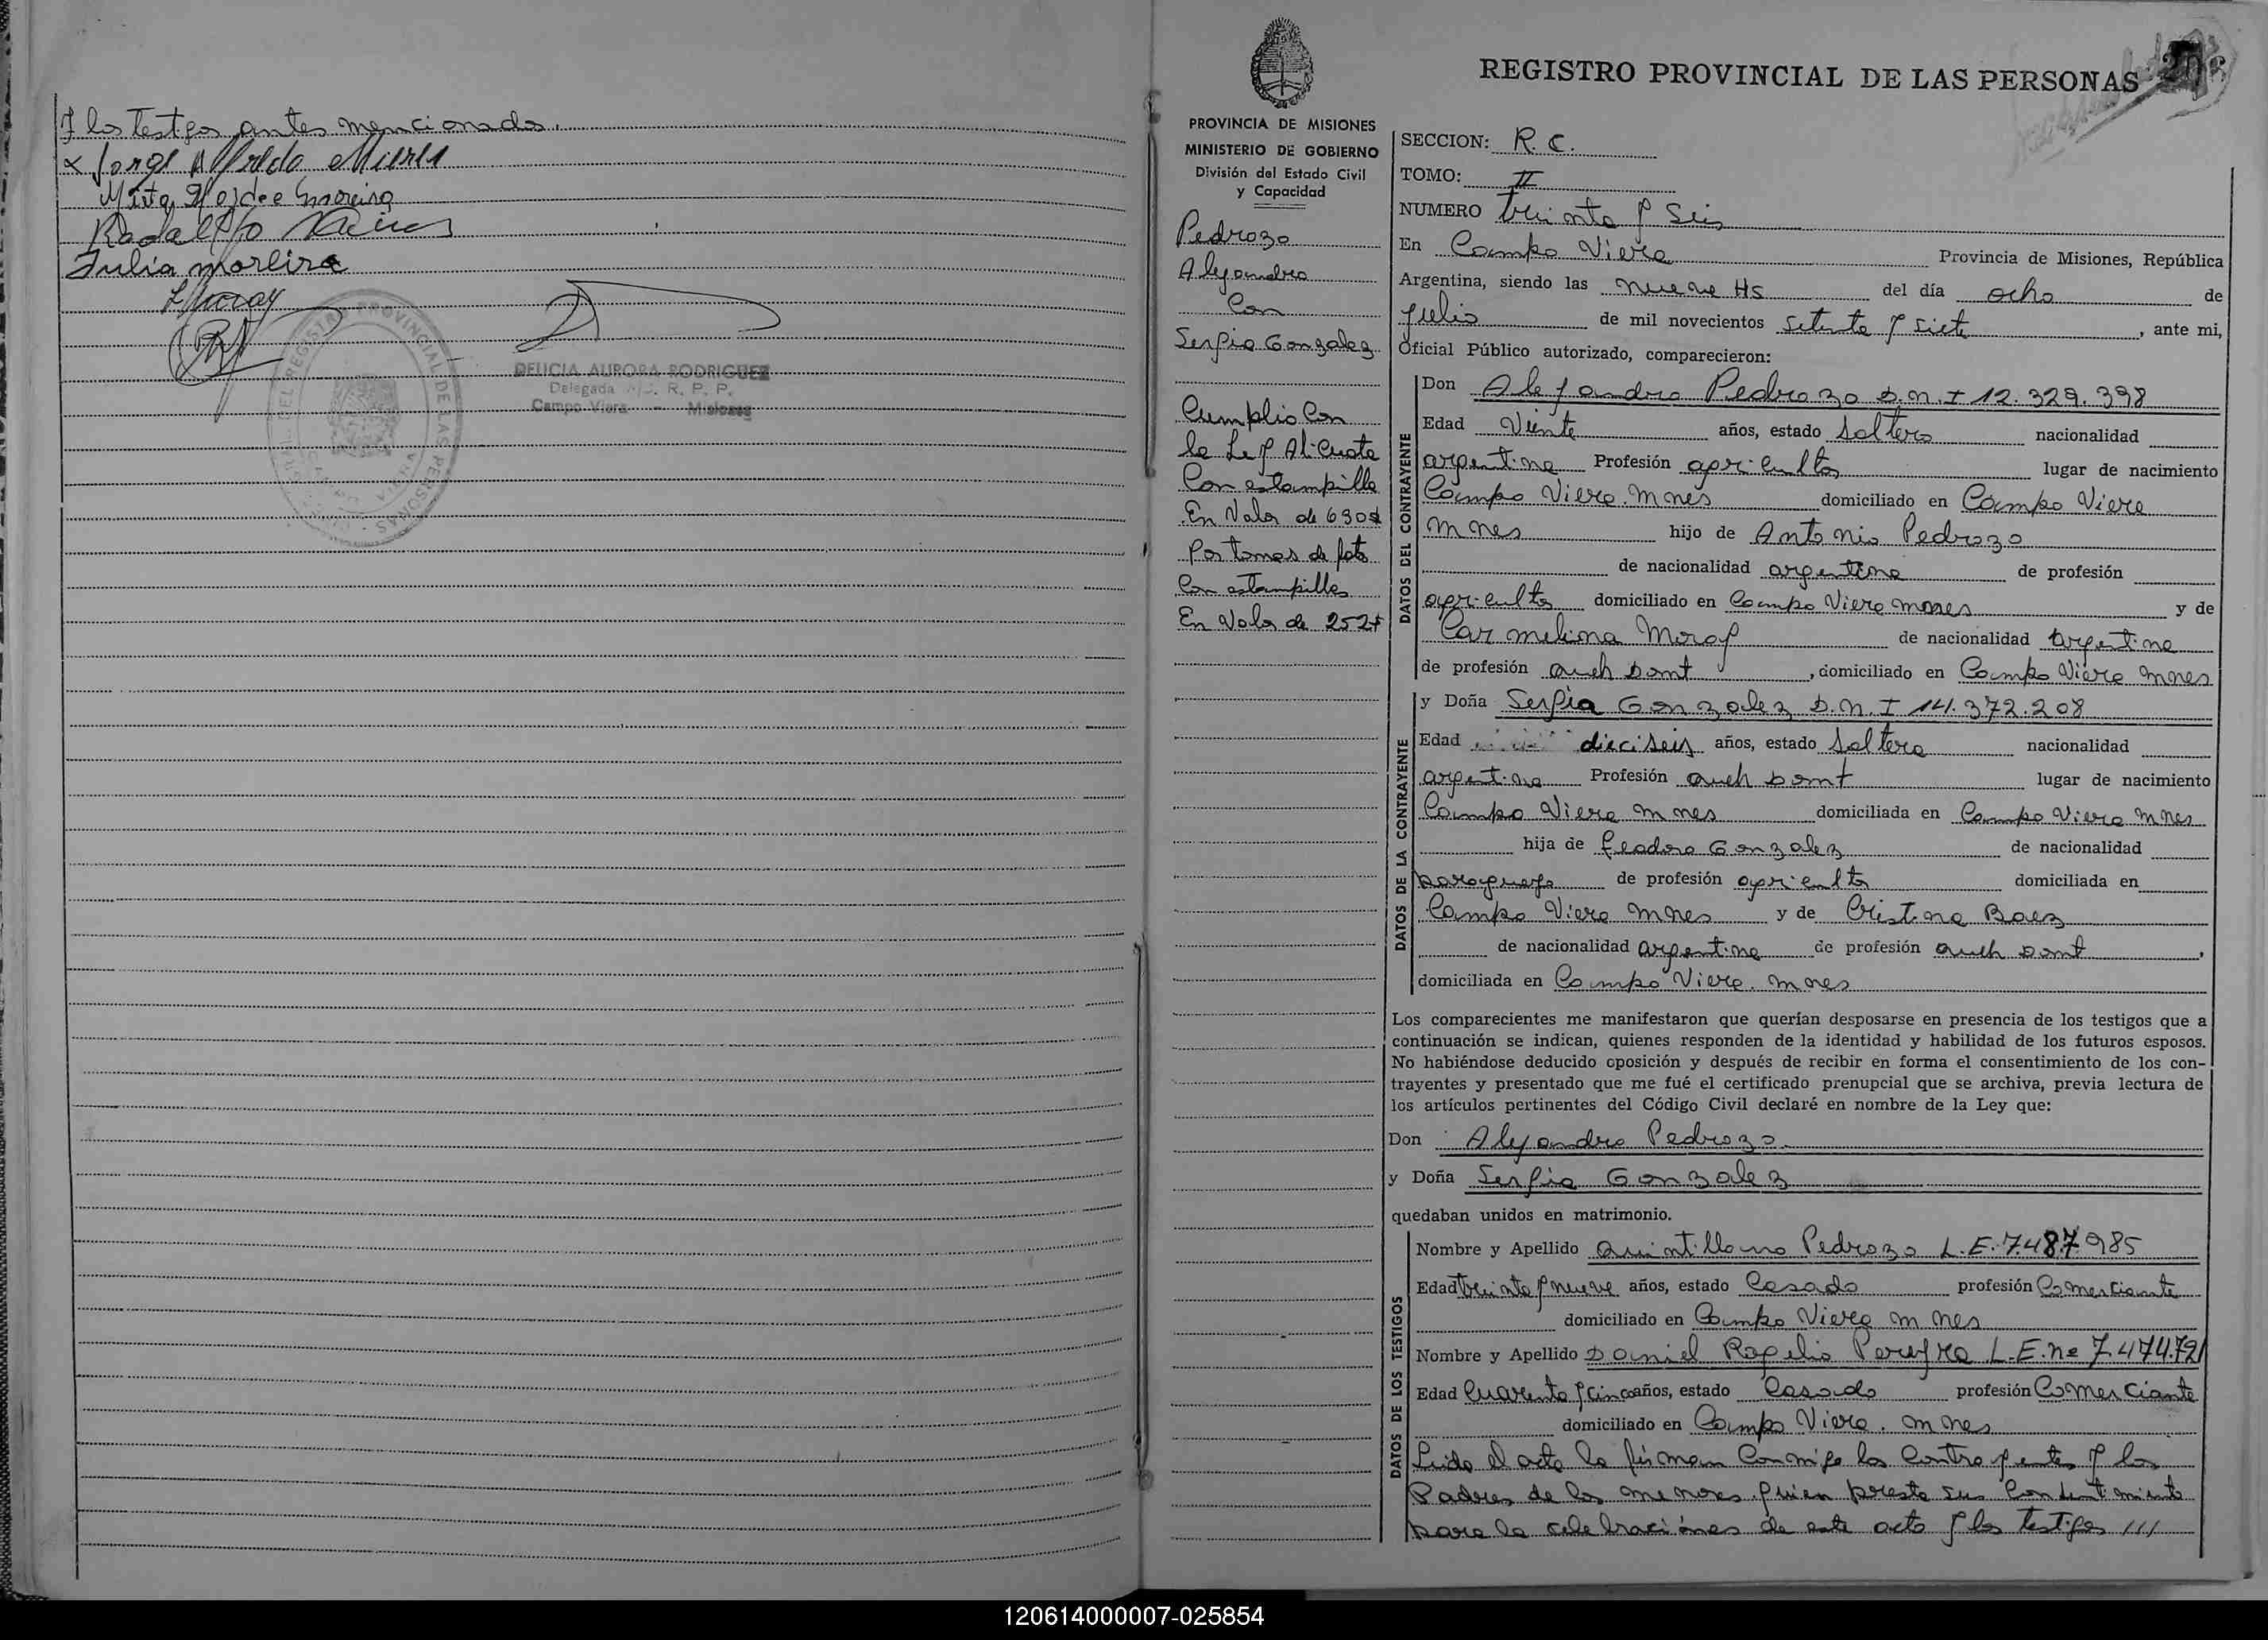 y los Testgos antes mencionados.
x Jorge Alfredo
Mirta Haydee Moreira
Julia Moreira
REGISTRO PROVINCIAL DE LAS PERSONAS
DELICIA AURORA RODRIGUEZ
Delegada R. P. P.
Campo Viera - Misiones
REGISTRO PROVINCIAL DE LAS PERSONAS
PROVINCIA DE MISIONES
MINISTERIO DE GOBIERNO
División del Estado Civil
y Capacidad
Pedrozo
Alejandro
Con
Serfia Gonzalez
Cumplio Con
la Ley Alicuota
Con estampilla
En Valor de 630$
Por tomas de foto
Con estampillas
En Valor de 252$
SECCION: R. C.
TOMO: II
NUMERO treinta y Seis
En Campo Viera Provincia de Misiones, República
Argentina, siendo las nueve Hs del día ocho de
julio de mil novecientos setenta y siete, ante mi,
Oficial Público autorizado, comparecieron:
DATOS DEL CONTRAYENTE
Don Alejandro Pedrozo D.N.I 12.329.398
Edad Viente años, estado Soltero nacionalidad
argentina Profesión agricultor lugar de nacimiento
Campo Viera. Mnes domiciliado en Campo Viera
Mnes hijo de Antonio Pedrozo
de nacionalidad argentina de profesión
agricultor domiciliado en Campo Viera Mnes y de
Carmelina Moray de nacionalidad argentina
de profesión Queh Domt, domiciliado en Campo Viera Mnes
DATOS DE LA CONTRAYENTE
y Doña Serfia Gonzalez D.N.I 14.372.208
Edad dieciseis años, estado Soltera nacionalidad
argentina Profesión Queh Domt lugar de nacimiento
Campo Viera Mnes domiciliada en Campo Viera Mnes
hija de Eleodoro Gonzalez de nacionalidad
paraguayo de profesión agricultor domiciliada en
Campo Viera Mnes y de Cristina Baez
de nacionalidad argentina de profesión Queh Domt,
domiciliada en Campo Viera. Mnes
Los comparecientes me manifestaron que querían desposarse en presencia de los testigos que a
continuación se indican, quienes responden de la identidad y habilidad de los futuros esposos.
No habiéndose deducido oposición y después de recibir en forma el consentimiento de los con-
trayentes y presentado que me fué el certificado prenupcial que se archiva, previa lectura de
los artículos pertinentes del Código Civil declaré en nombre de la Ley que:
Don Alejandro Pedrozo
y Doña Serfia Gonzalez
quedaban unidos en matrimonio.
DATOS DE LOS TESTIGOS
Nombre y Apellido Quintillano Pedrozo L.E. 7.487.985
Edad treinta y nueve años, estado Casado profesión Comerciante
domiciliado en Campo Viera Mnes
Nombre y Apellido Daniel Rogelio Pereyra L.E. Nº 7.474.721
Edad Cuarenta y cinco años, estado Casado profesión Comerciante
domiciliado en Campo Viera. Mnes
Leido el acta la firman Conmigo los Contrayentes y los
Padres de los menores quien presta su Consentimiento
para la celebraciones de este acto y los Testigos ///
120614000007-025854